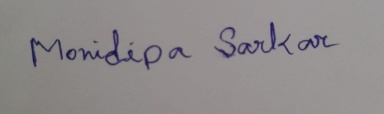 Monidipa Sarkar